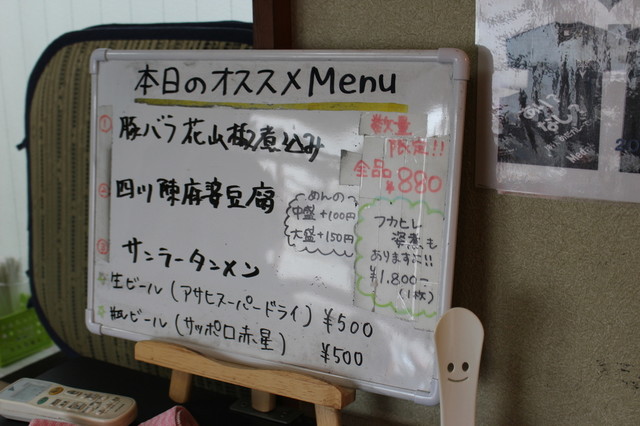 本日のオススメMenu
① 豚バラ花山椒煮込み
数量
限定!!
全品
¥880
② 四川陳麻婆豆腐
めんの
中盛 +100円
大盛 +150円
フカヒレ
姿煮も
あります!!
¥1,800-
(1枚)
③ サンラータンメン
生ビール(アサヒスーパードライ) ¥500
瓶ビール(サッポロ赤星) ¥500